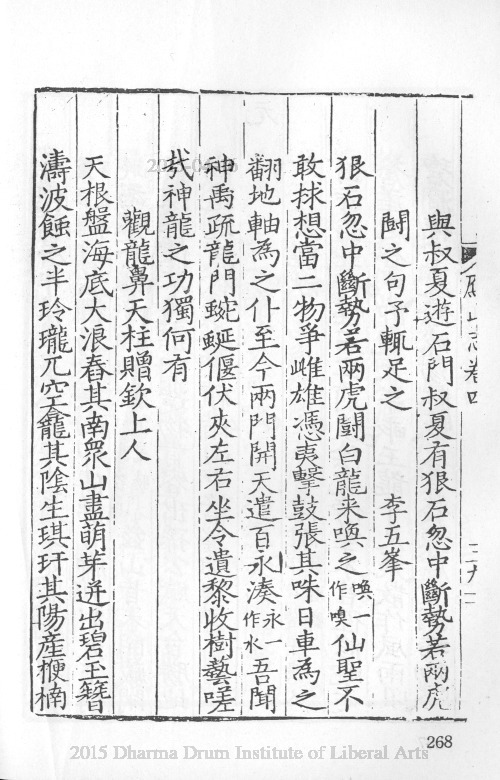 雁山志卷四
與叔夏遊石門叔夏有狠石忽中斷勢若兩虎
鬭之句予輒足之 李五峯
狠石忽中斷勢若兩虎鬭白龍来喚之喚一作嗅仙聖不
敢捄想當二物爭雌雄馮夷擊鼓張其咮日車為之
翻地軸為之仆至今兩門開天遣百永湊永一作水吾聞
神禹疏龍門蜿蜒偃伏夾左右坐令遺黎收樹藝嗟
哉神龍之功獨何有
觀龍鼻天柱贈欽上人
天根盤海底大浪舂其南衆山盡萌芽迸出碧玉簪
濤波蝕之半玲瓏兀空龕籠其陰生琪玕其陽産楩楠
268
2015 Dharma Drum Institute of Liberal Arts